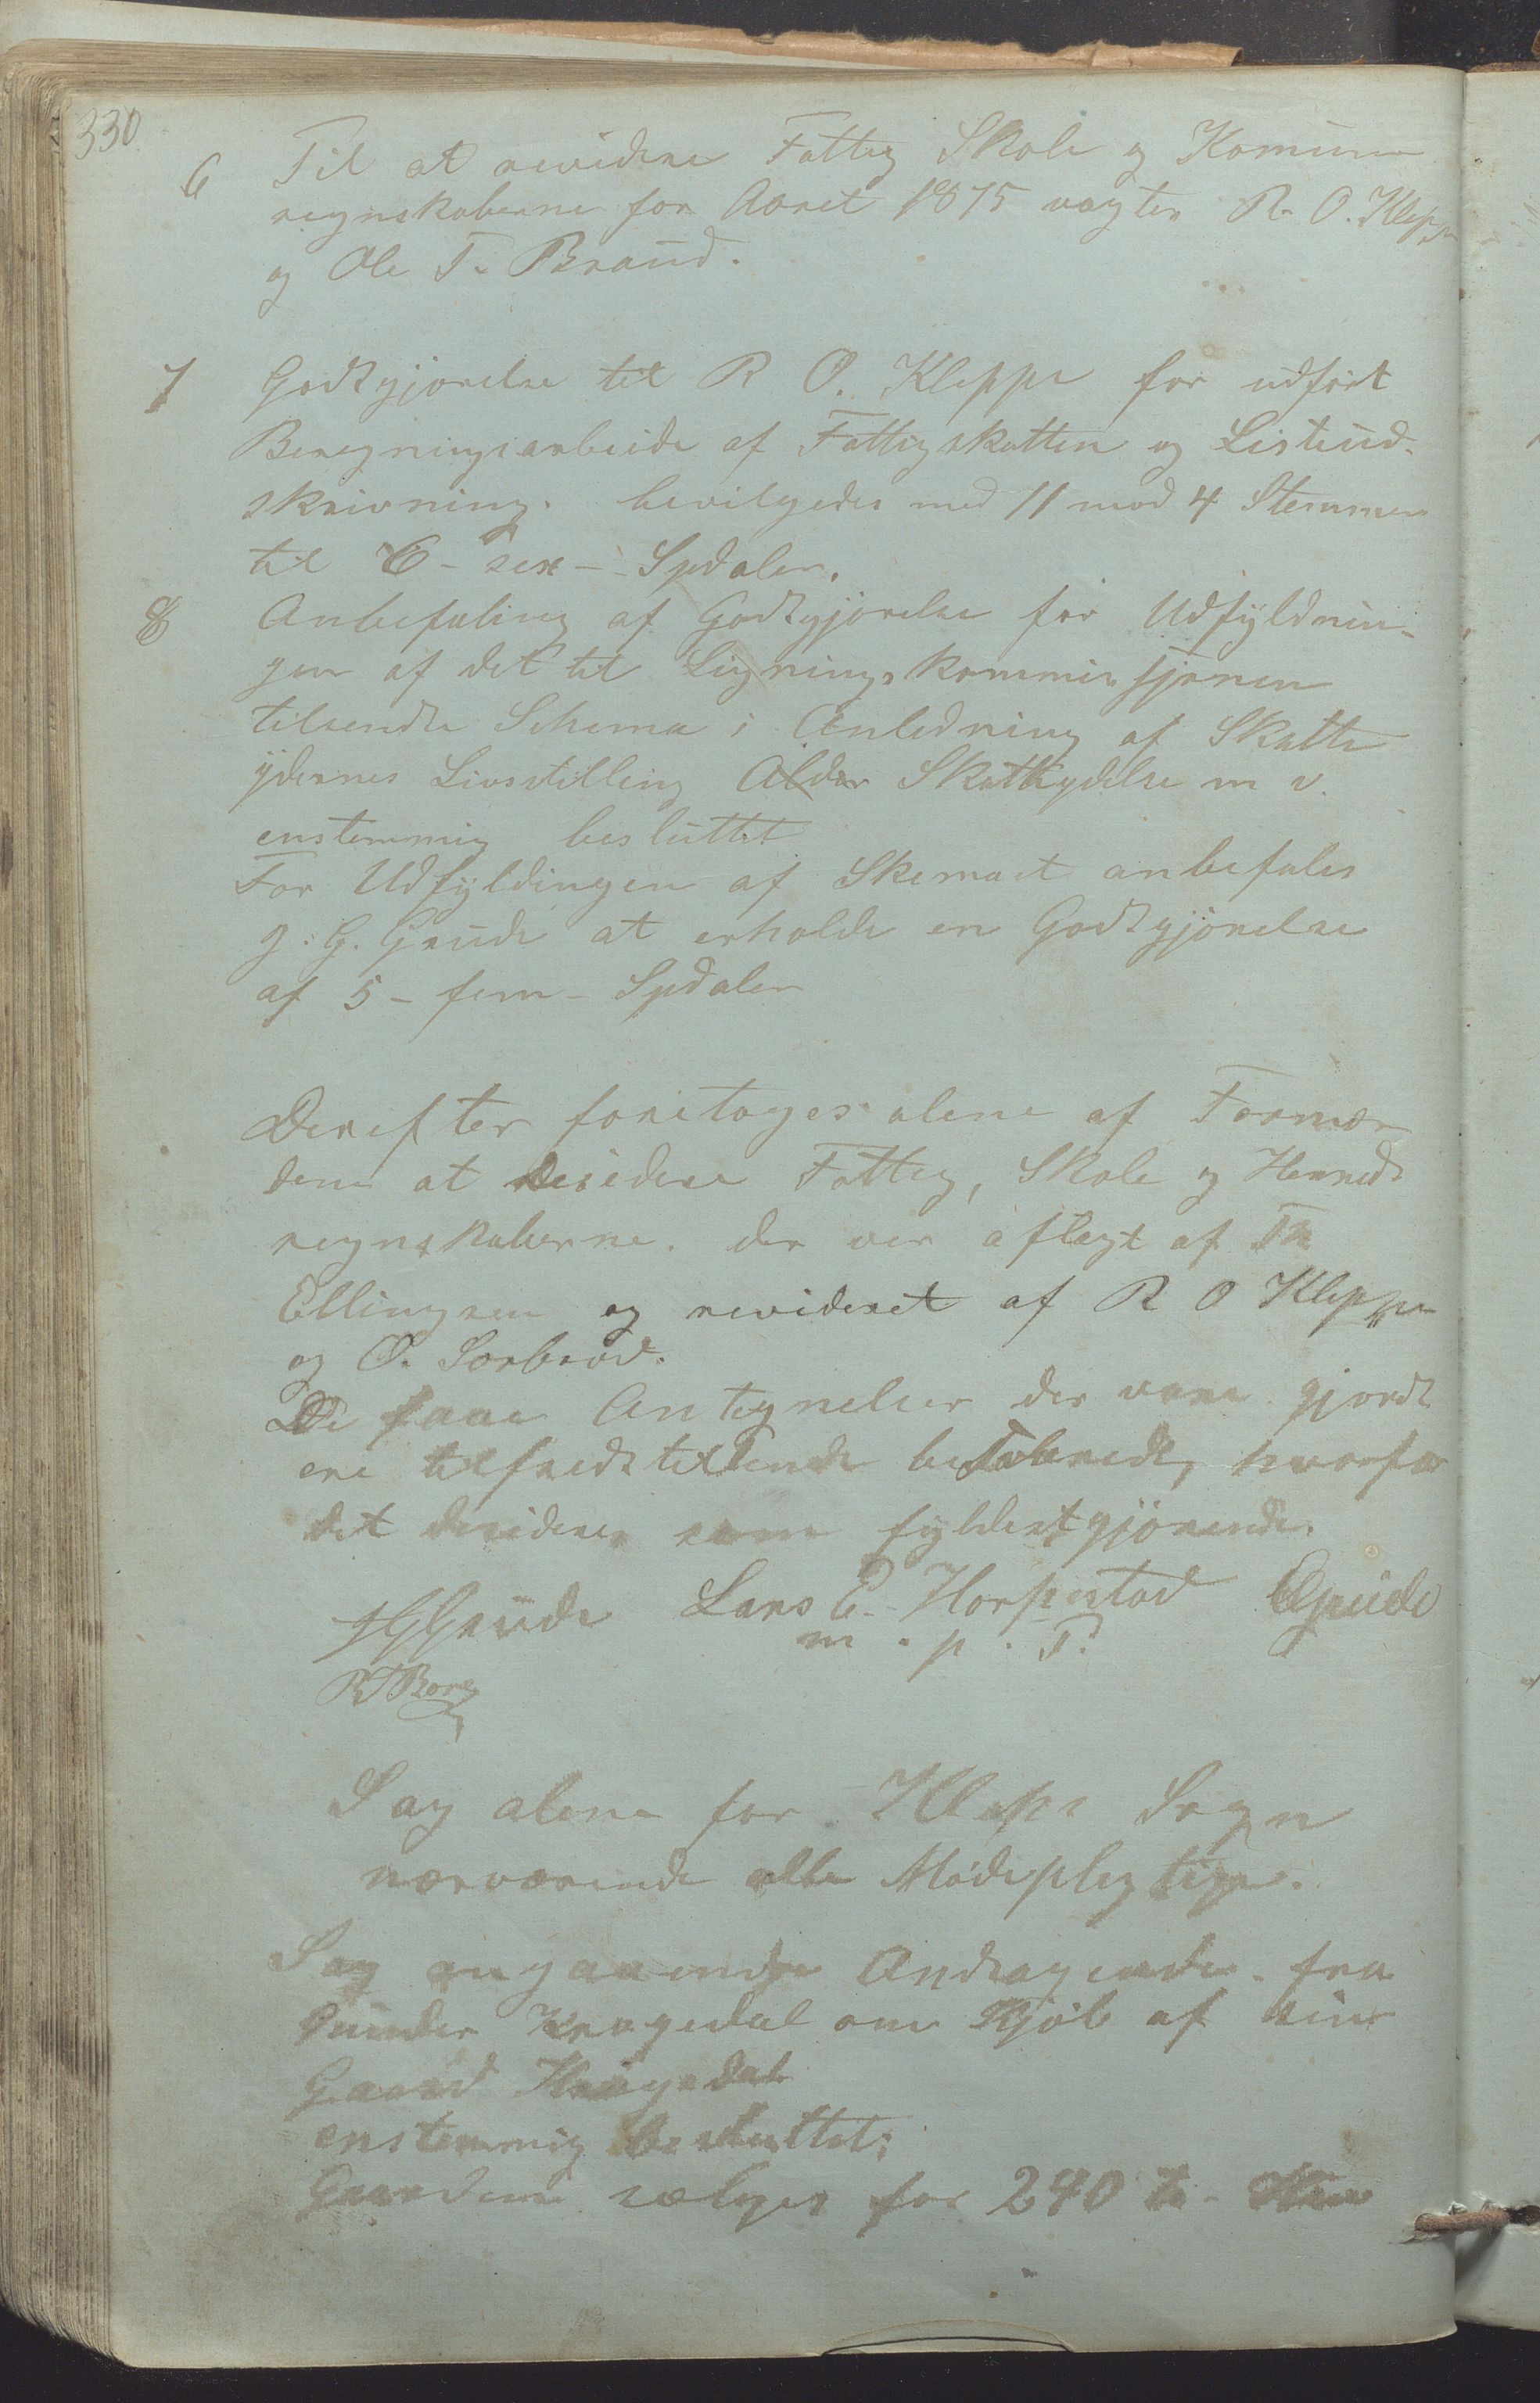 330
6 Til at revidere Fattig Skole og Komune
regnskaberne for Aaret 1875 vagtes R. O. Kleppe
og Ole T. Braud.
7 Godtgjørelse til R O. Kleppe for udført
Beregningsarbeide af Fattigskatten og Listeud-
skrivning. bevilgedes med 11 mod 4 Stemmer
til 6 - sex - Spdaler.
8 Anbefaling af Godtgjørelse for Udfyldnin-
gen af det til Ligningskommissjonen
tilsendte Schema i Anledning af Skatte
ydernes Livsstilling Alder Skatteydelse m v.
enstemmig besluttet
For Udfyldingen af Skemaet anbefales
J. G. Grude at erholde en Godtgjørelse
af 5 - fem - Spdaler
Derefter foretoges alene af Formæn
dene at desidere Fattig, Skole og Herreds
regnskaberne. der var aflagt af Th
Ellingsen og revideret af R O Kleppe
og O. Sorbrød.
De faae Antegnelser der vare gjordt
ere tilfredstillende besvarede, hvorfor
det desideres som fyldestgjørende.
JGGrude Lars E. Horpestad EGrude
m . p . P.
RTBore
Sag alene for Klepe Sogn
nærværende alle Mødepligtige.
Sag angaaende Andragende fra
Gunder Krogedal om Kjøb af sin
Gaard Krogedal
enstemmig besluttet;
Gaarden sælges for 240